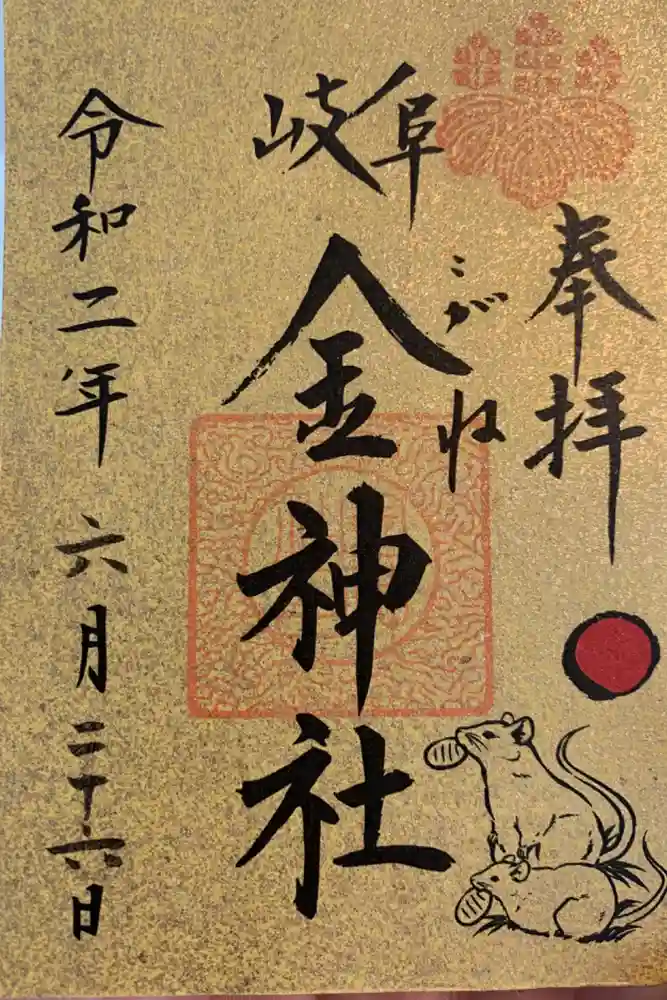 奉拝
岐阜
こがね
金神社
令和二年 六月二十六日